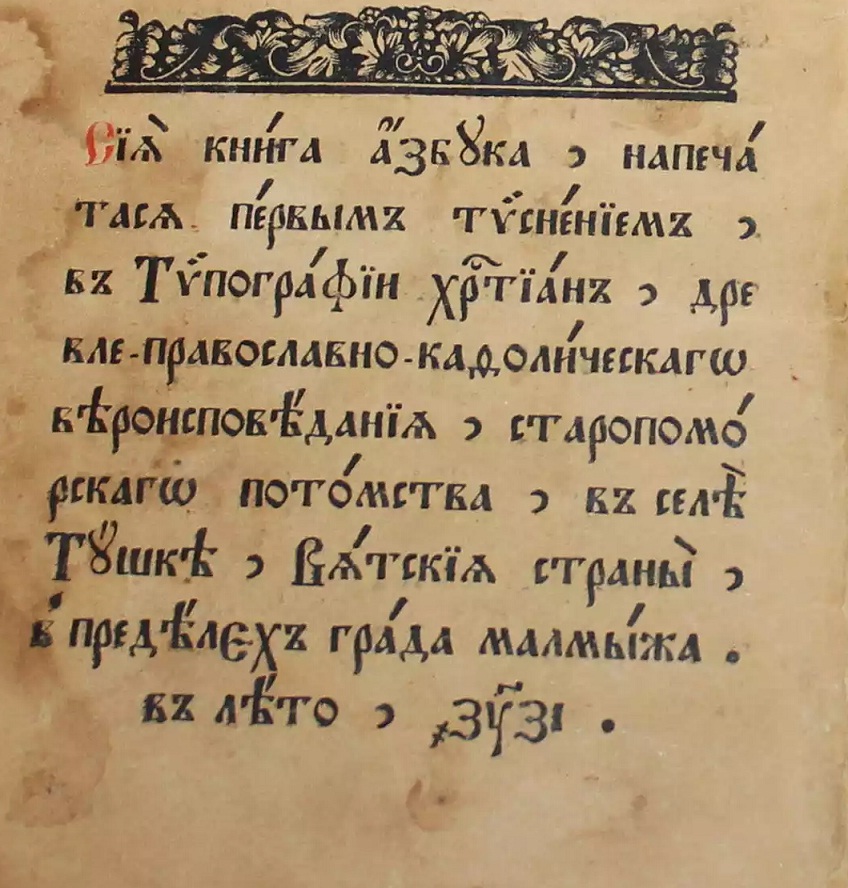 Сїѧ̀ кни́га а҆́збꙋка , напеча́
тасѧ пе́рвымъ тѷсне́нїемъ ,
въ Тѷпогра́фїи хрⷭ҇тїа́нъ , дре
вле-православно-каѳоли́ческагѡ
вѣроисповѣ́данїѧ , старопомо́
рскагѡ пото́мства , въ селѣ̀
Тꙋ́шкѣ , Вѧ́тскїѧ страны̀ ,
в̾ предѣ́лєхъ гра́да малмы́жа .
въ лѣ́то , ҂зу҃зі .